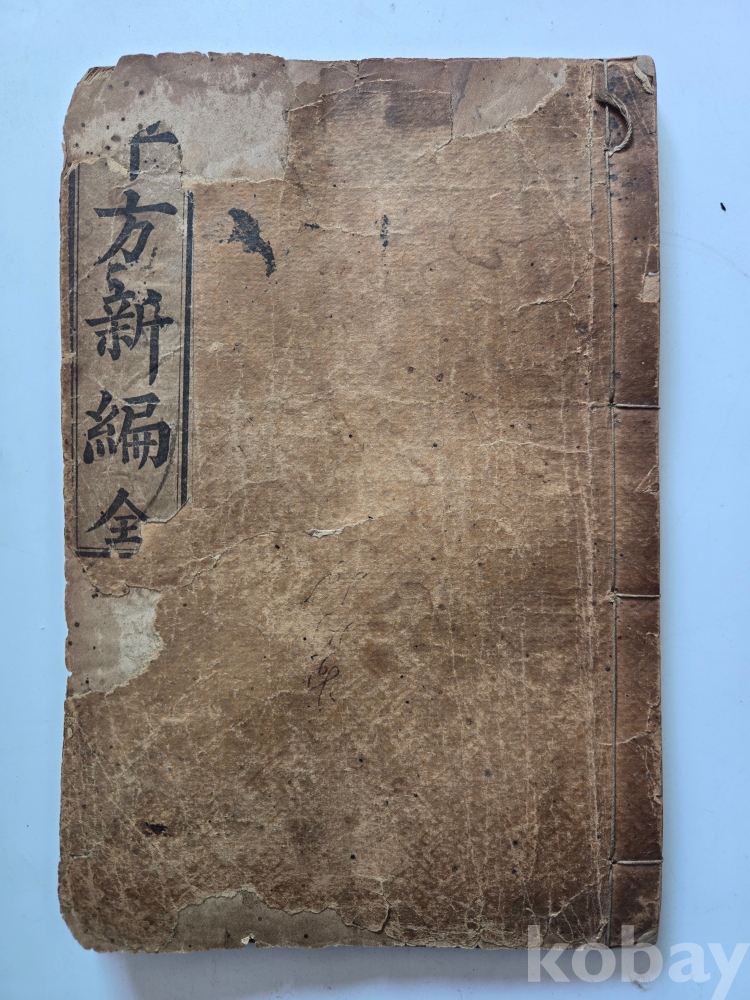 方新編全
kobay